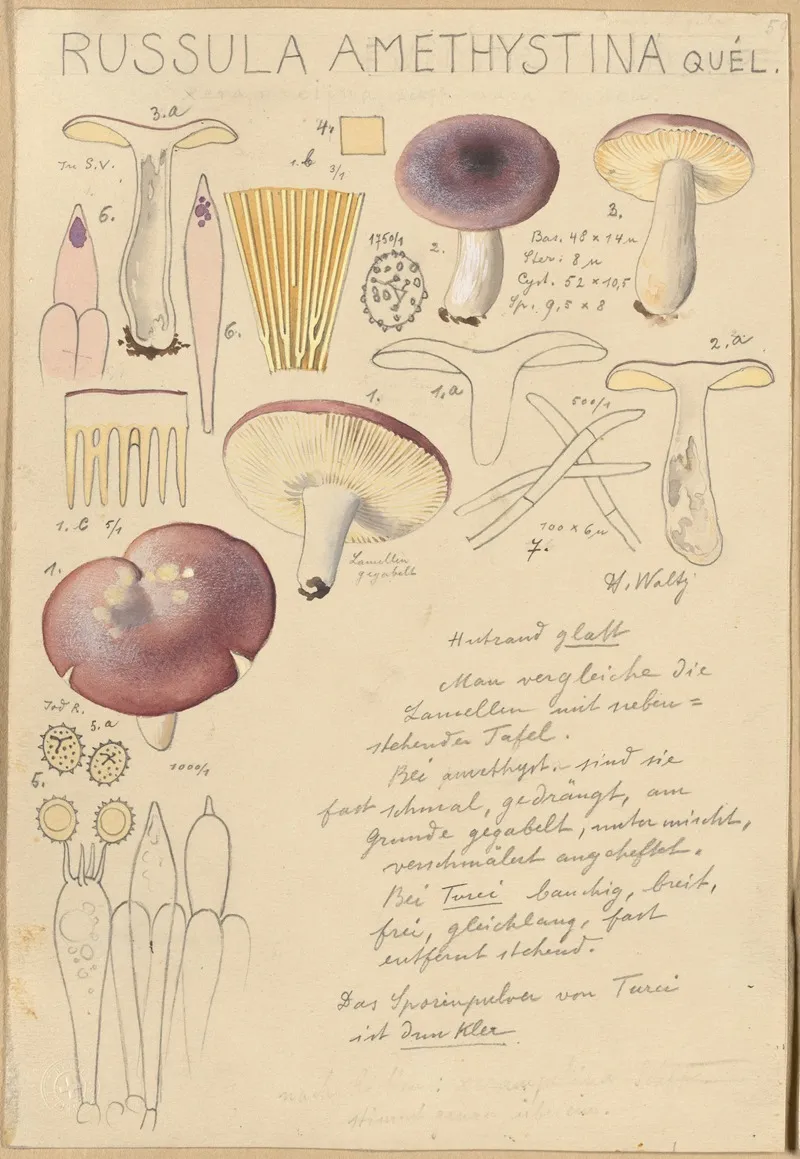 RUSSULA AMETHYSTINA QUÉL.
3.a
In S.V.
6.
4.
1.b 3/1
1750/1
2.
3.
Bas. 48 x 14 µ
Ster: 8 µ
Cyst. 52 x 10,5
Sp. 9,5 x 8
6.
2.a
1.
1.a
500/1
100 x 6 µ
7.
1.c 5/1
Lamellen
gegabelt
H. Waltz
1.
Hutrand glatt
Man vergleiche die
Lamellen mit neben=
stehender Tafel.
Bei amethyst. sind sie
fast schmal, gedrängt, am
Grunde gegabelt, untermischt,
verschmälert angeheftet.
Bei Turci bauchig, breit,
frei, gleichlang, fast
entfernt stehend.
Das Sporenpulver von Turci
ist dunkler
Jod R.
5.a
5.
1000/1